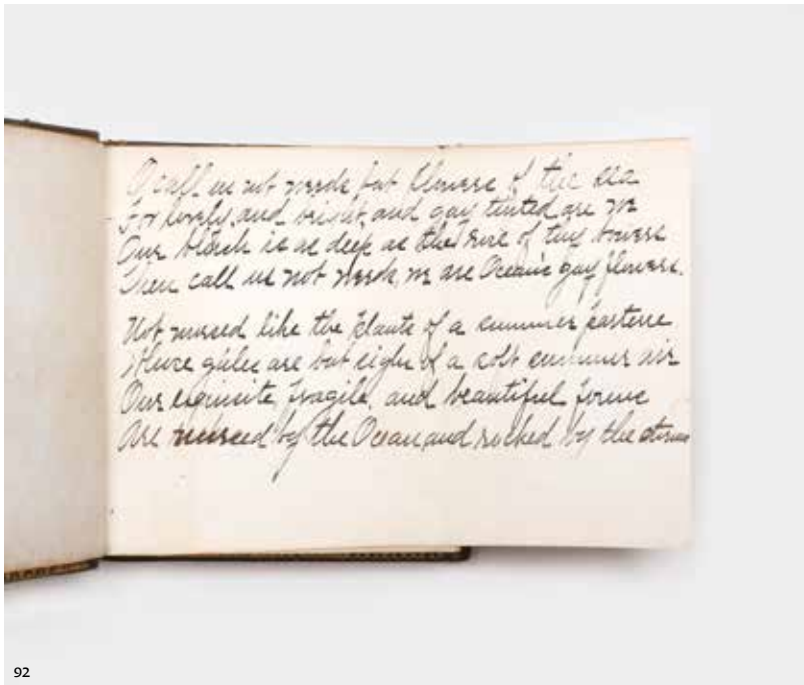 O call us not weeds but flowers of the sea
For lovely, and bright, and gay tinted are we
Our blush is as deep as the rose of thy bowers
Then call us not weeds, we are Ocean's gay flowers.
Not nursed like the plants of a summer parterre
Whose gales are but sighs of a soft summer air
Our exquisite, fragile, and beautiful forms
Are nursed by the Ocean, and rocked by the storms
92